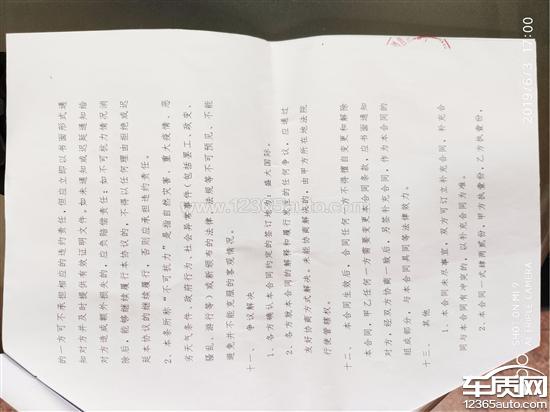 的一方可不承担相应的违约责任，但应立即以书面形式通
知对方并及时提供有效证明文件。如未通知或迟延通知给
对方造成额外损失的，应负赔偿责任；如不可抗力情况消
除后，能够继续履行本协议的，不得以任何理由拒绝或迟
延本协议的继续履行，否则应承担违约责任。
2、本条所称“不可抗力”是指自然灾害、重大疫情、恶
劣天气条件、政府行为、社会异常事件（包括罢工、政变、
骚乱、游行等）或新颁布的法律、法规等不可预见、不能
避免并不能克服的客观情况。
十一、 争议解决
1、各方确认本合同约定的签订地为：盛大国际。
2、各方就本合同的解释和履行发生的任何争议，应通过
友好协商方式解决。未能协商解决的，由甲方所在地法院
行使管辖权。
十二、 本合同生效后，合同任何一方不得擅自变更和解除
本合同，甲乙任何一方需要变更本合同条款，应书面通知
对方，经双方协商一致后，另签补充合同，作为本合同的
组成部分，与本合同具同等法律效力。
十三、 其他
1、本合同未尽事宜，双方可订立补充合同，补充合
同与本合同有冲突的，以补充合同为准。
2、本合同一式肆两贰份，甲方执壹份，乙方执壹份，
www.12365auto.com
2019/6/3 17:00
SHOT ON MI 9
AI TRIPLE CAMERA
车质网
12365auto.com